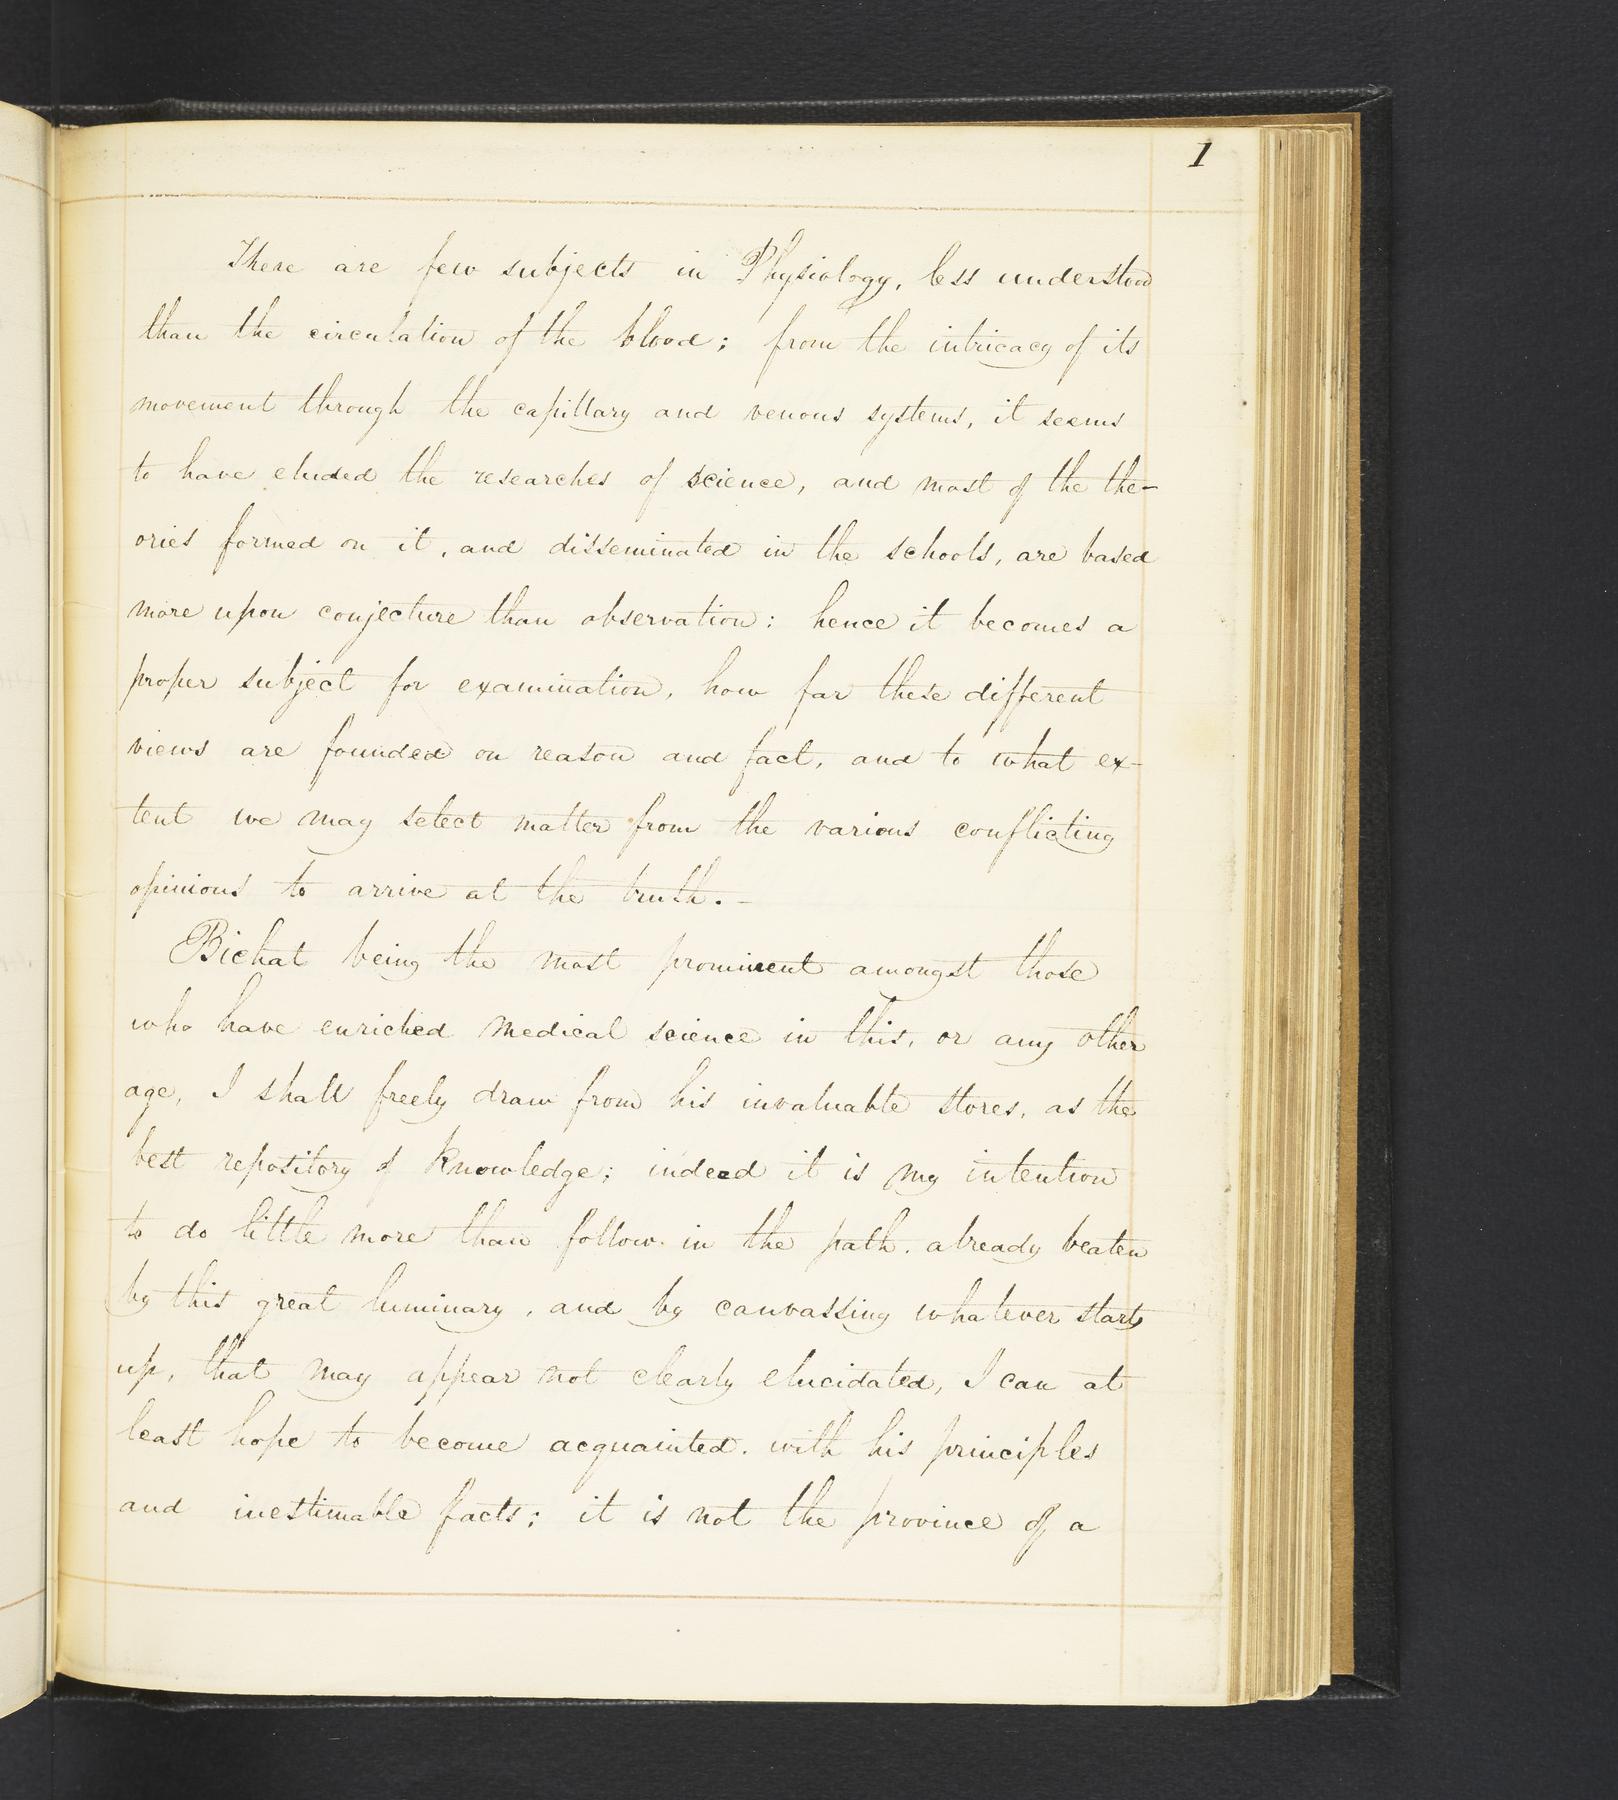 1
There are few subjects in Physiology, less understood
than the circulation of the blood; from the intricacy of its
movement through the capillary and venous systems, it seems
to have eluded the researches of science, and most of the the-
ories formed on it, and disseminated in the schools, are based
more upon conjecture than observation: hence it becomes a
proper subject for examination, how far these different
views are founded on reason and fact, and to what ex-
tent we may select matter from the various conflicting
opinions to arrive at the truth.-
Bichat being the most prominent amongst those
who have enriched medical science in this, or any other
age, I shall freely draw from his invaluable stores, as the
best repository of knowledge; indeed it is my intention
to do little more than follow in the path. already beaten
by this great luminary, and by canvassing whatever starts
up, that may appear not clearly elucidated, I can at
least hope to become acquainted. with his principles
and inestimable facts; it is not the province of a